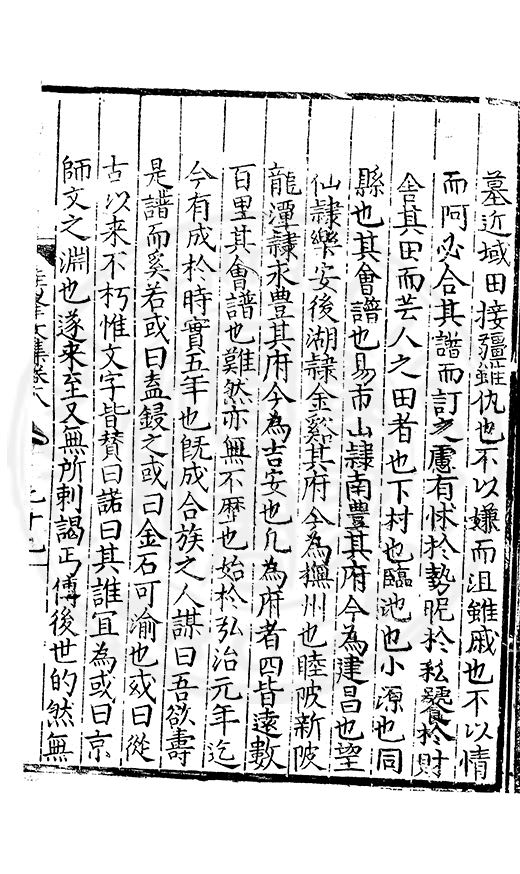 墓近域田接疆雖仇也不以嫌而沮雖戚也不以情
而阿必合其譜而訂之慮有怵於勢昵於私饕於財
舍其田而芸人之田者也下村也臨池也小源也同
縣也其會譜也易市山隸南豐其府今為建昌也望
仙隸樂安後湖隸金谿其府今為撫州也睦陂新陂
龍潭隸永豐其府今為吉安也凡為府者四皆遠數
百里其會譜也難然亦無不歷也始於弘治元年迄
今有成於時實五年也既成合族之人謀曰吾欲壽
是譜而奚若或曰盍鋟之或曰金石可渝也或曰從
古以来不朽惟文字皆賛曰諾曰其誰宜為或曰京
師文之淵也遂来至又無所刺謁丐傳後世的然無
文集卷八